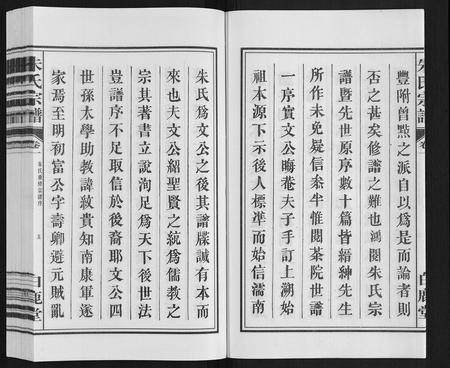 豐附曾點之派自以爲是而論者則
否之甚矣修譜之難也鴻閱朱氏宗
譜暨先世原序數十篇皆縉紳先生
所作未免疑信叅半惟閱茶院世譜
一序實文公晦菴夫子手訂上溯始
祖本源下示後人標準而始信濡南
朱氏爲文公之後其譜牒誠有本而
來也夫文公紹聖賢之統爲儒教之
宗其著書立說洵足爲天下後世法
豈譜序不足取信於後裔耶文公四
世孫太學助教諱敘貴知南康軍遂
家焉至明初富公字壽卿避元賊亂
朱氏宗譜
卷一
朱氏重修宗譜序
五
白鹿堂
朱氏宗譜
卷
白鹿堂